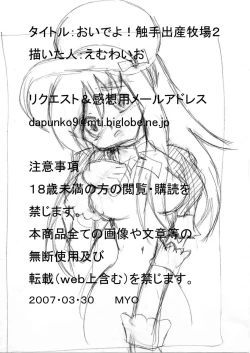 タイトル：おいでよ！触手出産牧場２
描いた人：えむわいお
リクエスト＆感想用メールアドレス
dapunko9@mti.biglobe.ne.jp
注意事項
１８歳未満の方の閲覧・購読を
禁じます。
本商品全ての画像や文章等の
無断使用及び
転載（web上含む）を禁じます。
２００７・０３・３０　ＭＹＯ